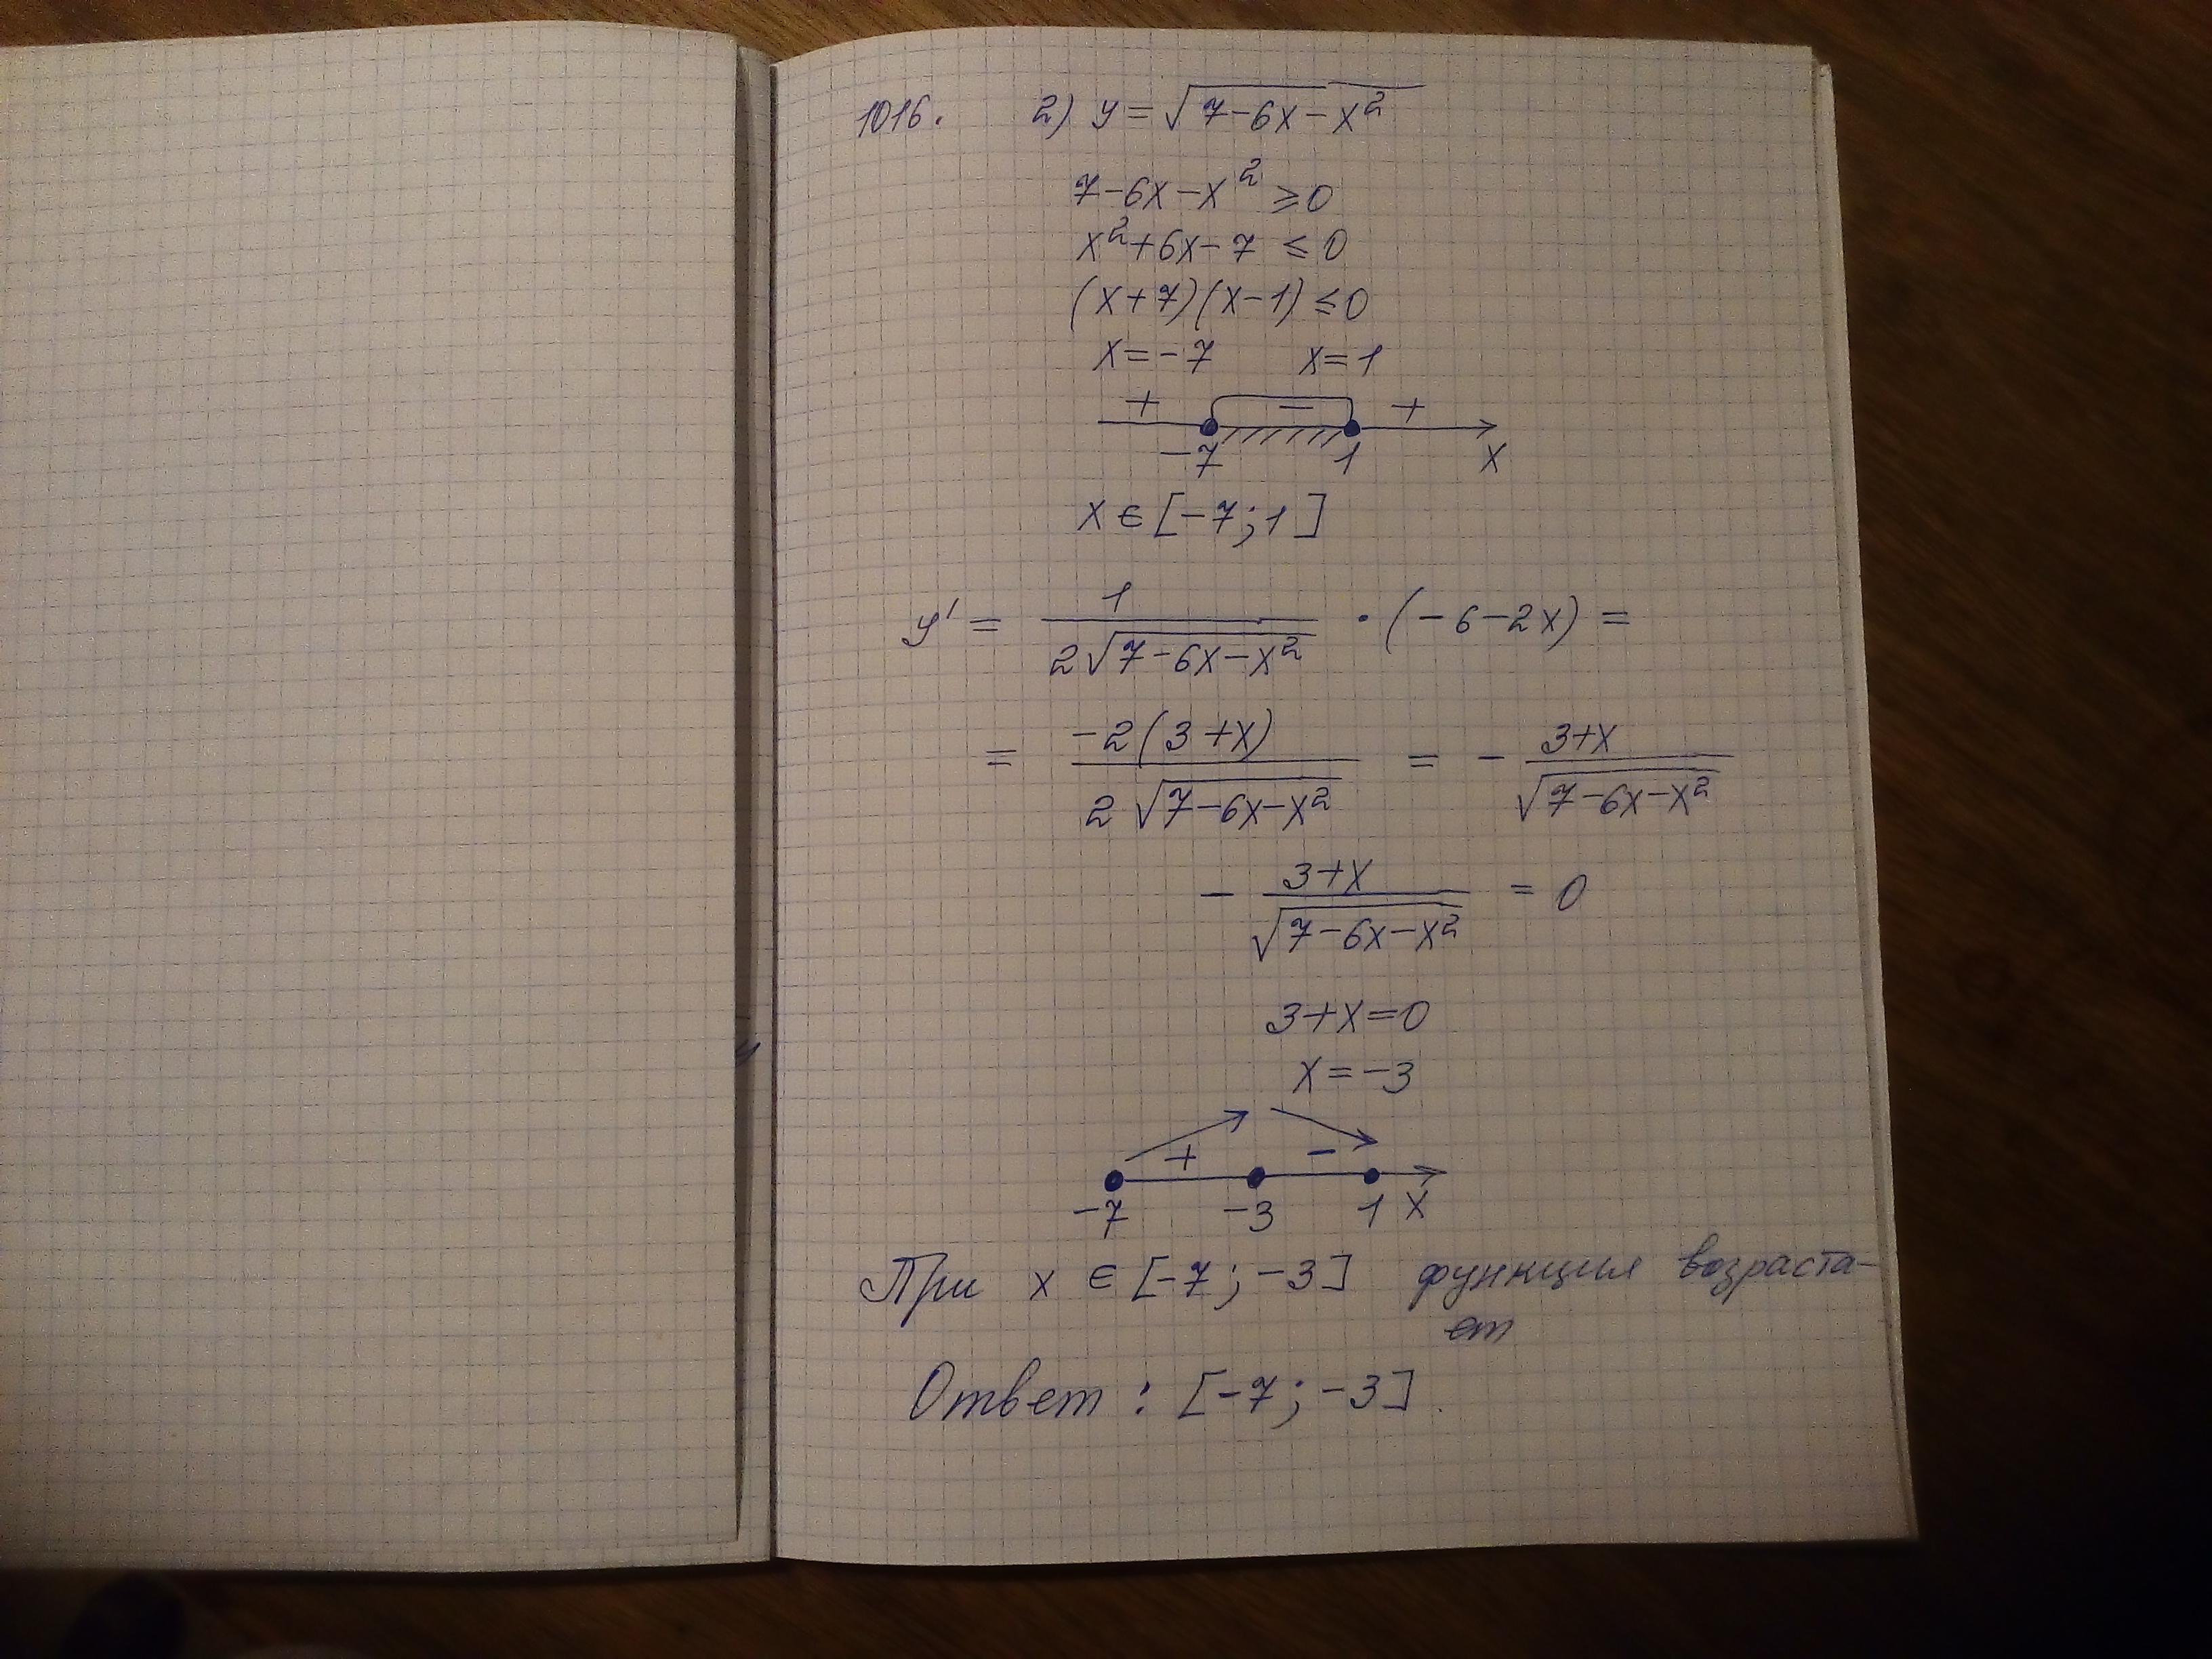 1016. 2) y = √(7-6x-x²)
7-6x-x² ≥ 0
x²+6x-7 ≤ 0
(x+7)(x-1) ≤ 0
x=-7 x=1
+ - +
-7 1 x
x ∈ [-7; 1]
y' = 1/(2√(7-6x-x²)) · (-6-2x) =
= -2(3+x)/(2√(7-6x-x²)) = - (3+x)/√(7-6x-x²)
- (3+x)/√(7-6x-x²) = 0
3+x=0
x=-3
+ -
-7 -3 1 x
При x ∈ [-7; -3] функция возраста-
ет
Ответ: [-7; -3].